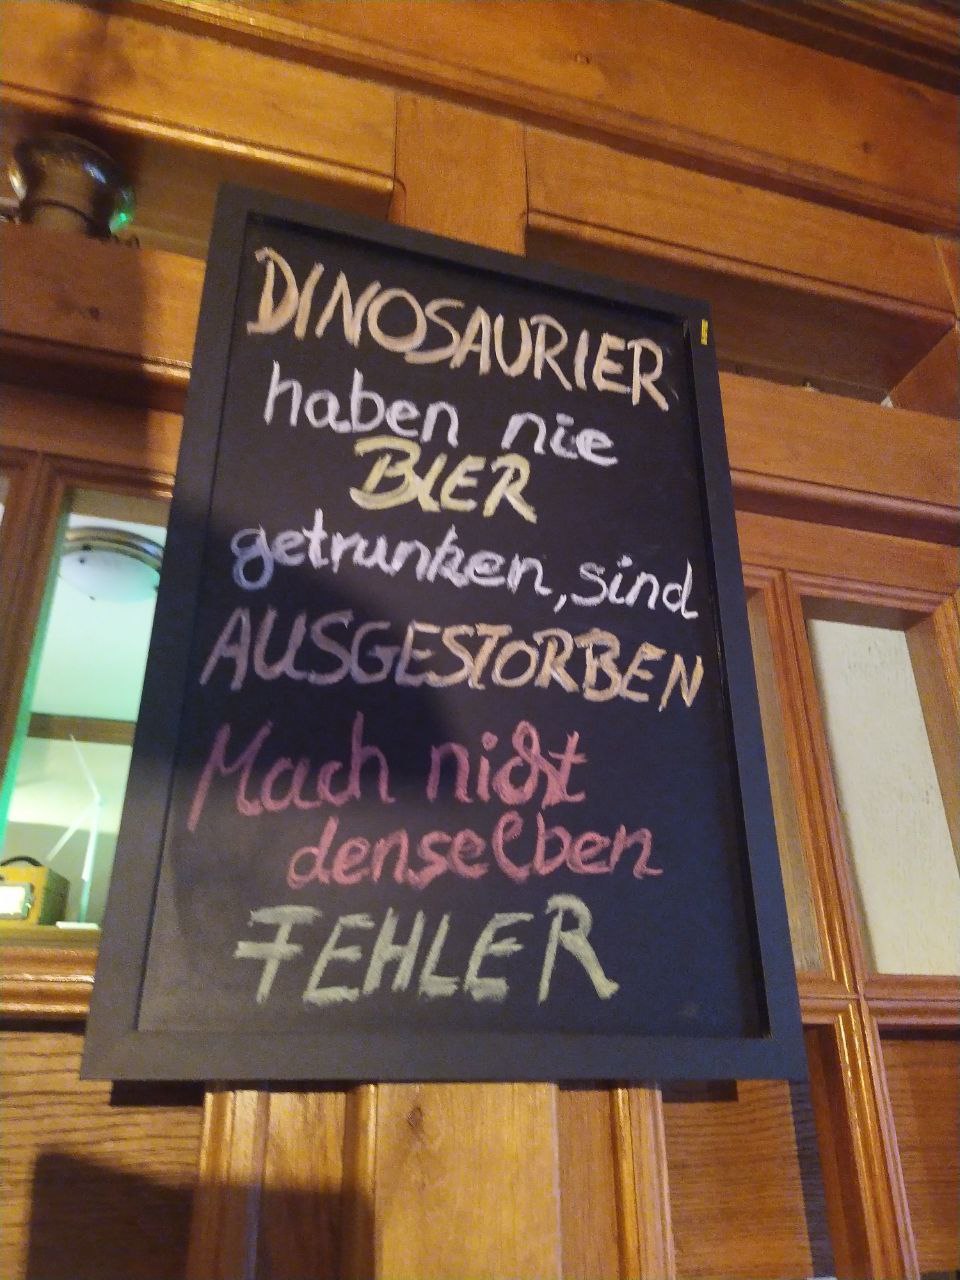 DINOSAURIER
haben nie
BIER
getrunken, sind
AUSGESTORBEN
Mach nicht
denselben
FEHLER